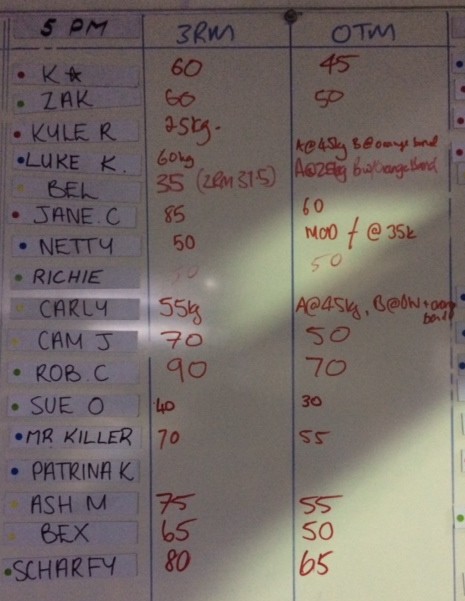 5 PM 3RM OTM
K☆ 60 45
ZAK 60 50
KYLE R 25kg.
LUKE K. 60kg A@45kg B@orange band
BEL 35 (2RM 37.5) A@25kg Bw/Orange Band
JANE.C 85 60
NETTY 50 MOD / @35k
RICHIE 50 50
CARLY 55kg A@45kg, B@BW+orange band
CAM J 70 50
ROB.C 90 70
SUE O 40 30
MR KILLER 70 55
PATRINA K
ASH M 75 55
BEX 65 50
SCHARFY 80 65